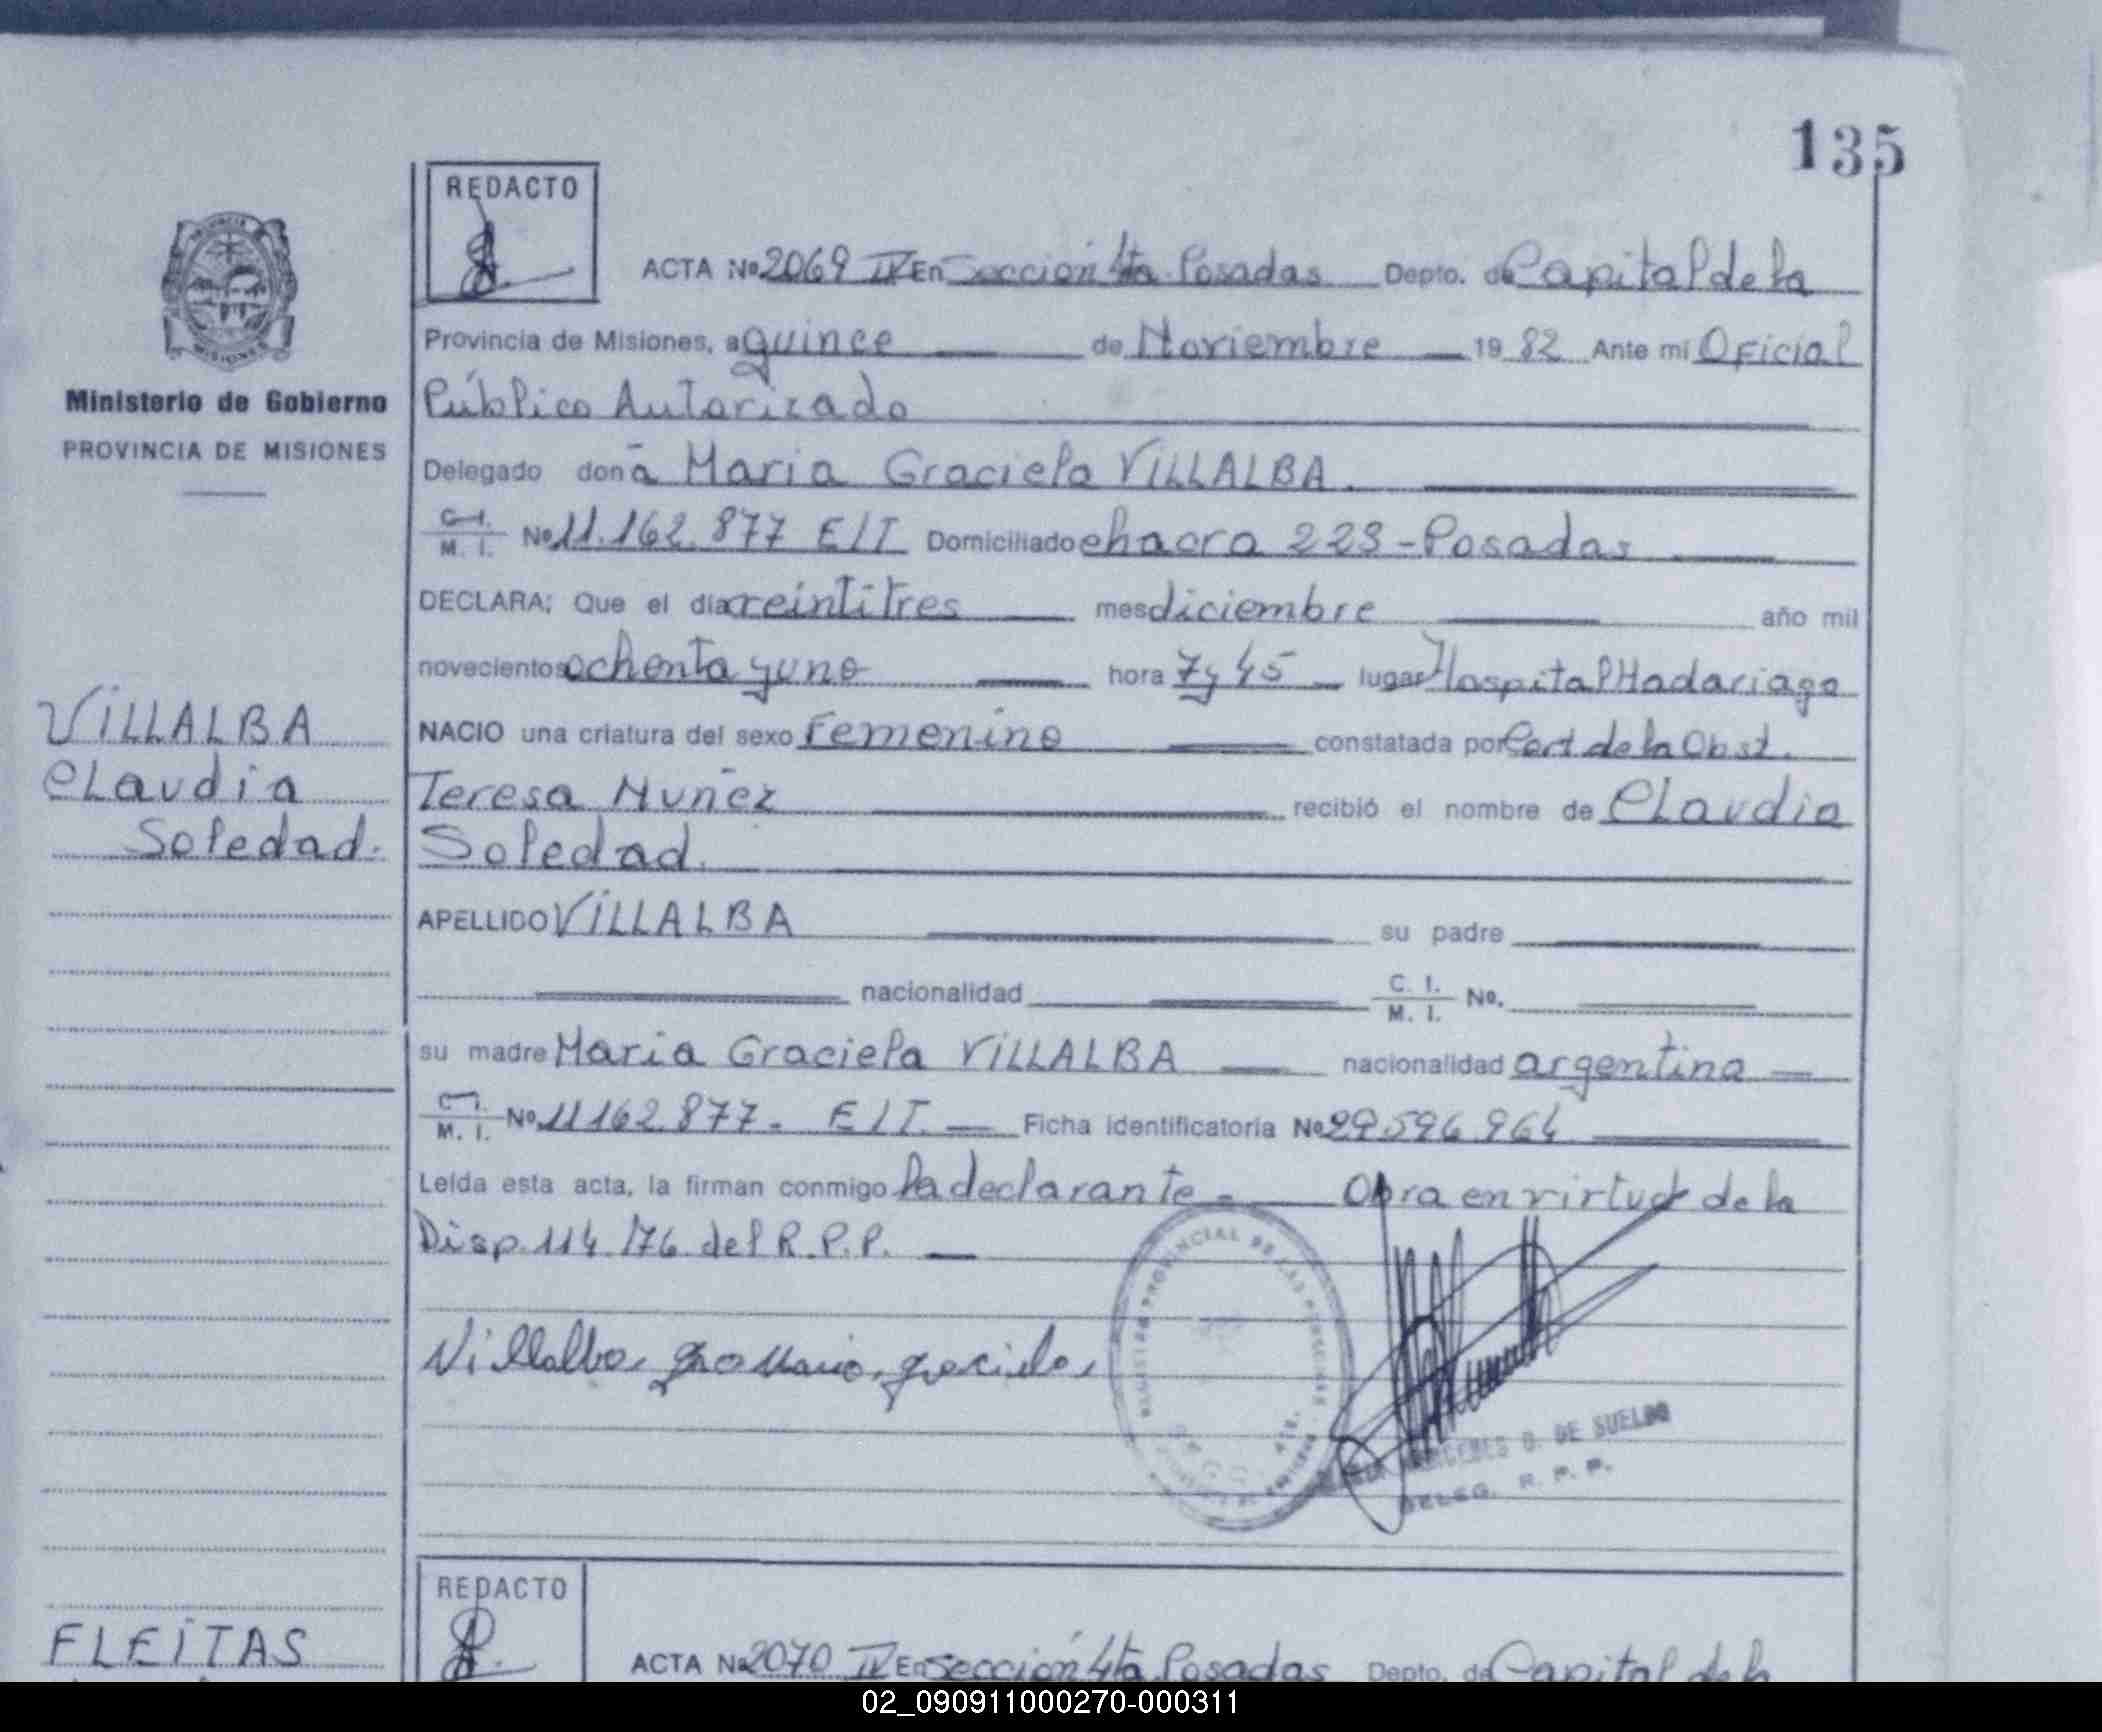 135
REDACTO
ACTA No 2069 IV En Sección 4ta Posadas Depto. de Capital de la
Provincia de Misiones, a quince de Noviembre 19 82 Ante mí Oficial
Ministerio de Gobierno
Público Autorizado
PROVINCIA DE MISIONES
Delegado doña Maria Graciela VILLALBA.
C. I. / M. I. No 11.162.877 E/T Domiciliado chacra 223-Posadas
DECLARA; Que el día veintitres mes diciembre año mil
novecientos ochenta y uno hora 7 y 45 lugar Hospital Madariaga
VILLALBA
NACIO una criatura del sexo Femenino constatada por Cert. de la Obst.
Claudia
Teresa Nuñez recibió el nombre de Claudia
Soledad.
Soledad.
APELLIDO VILLALBA su padre
nacionalidad C. I. / M. I. No.
su madre Maria Graciela VILLALBA nacionalidad argentina
C. I. / M. I. No 11162.877. E/T. Ficha identificatoria No 29.596.964
Leída esta acta, la firman conmigo la declarante. Obra en virtud de la
Disp. 114/76 del R.P.P.
REGISTRO PROVINCIAL DE LAS PERSONAS
Villalba, maria, graciela
DE SUELDO
DELEG. R. P. P.
REDACTO
FLEITAS
ACTA No 2070 IV En Sección 4ta Posadas Depto. de Capital de la
02_090911000270-000311